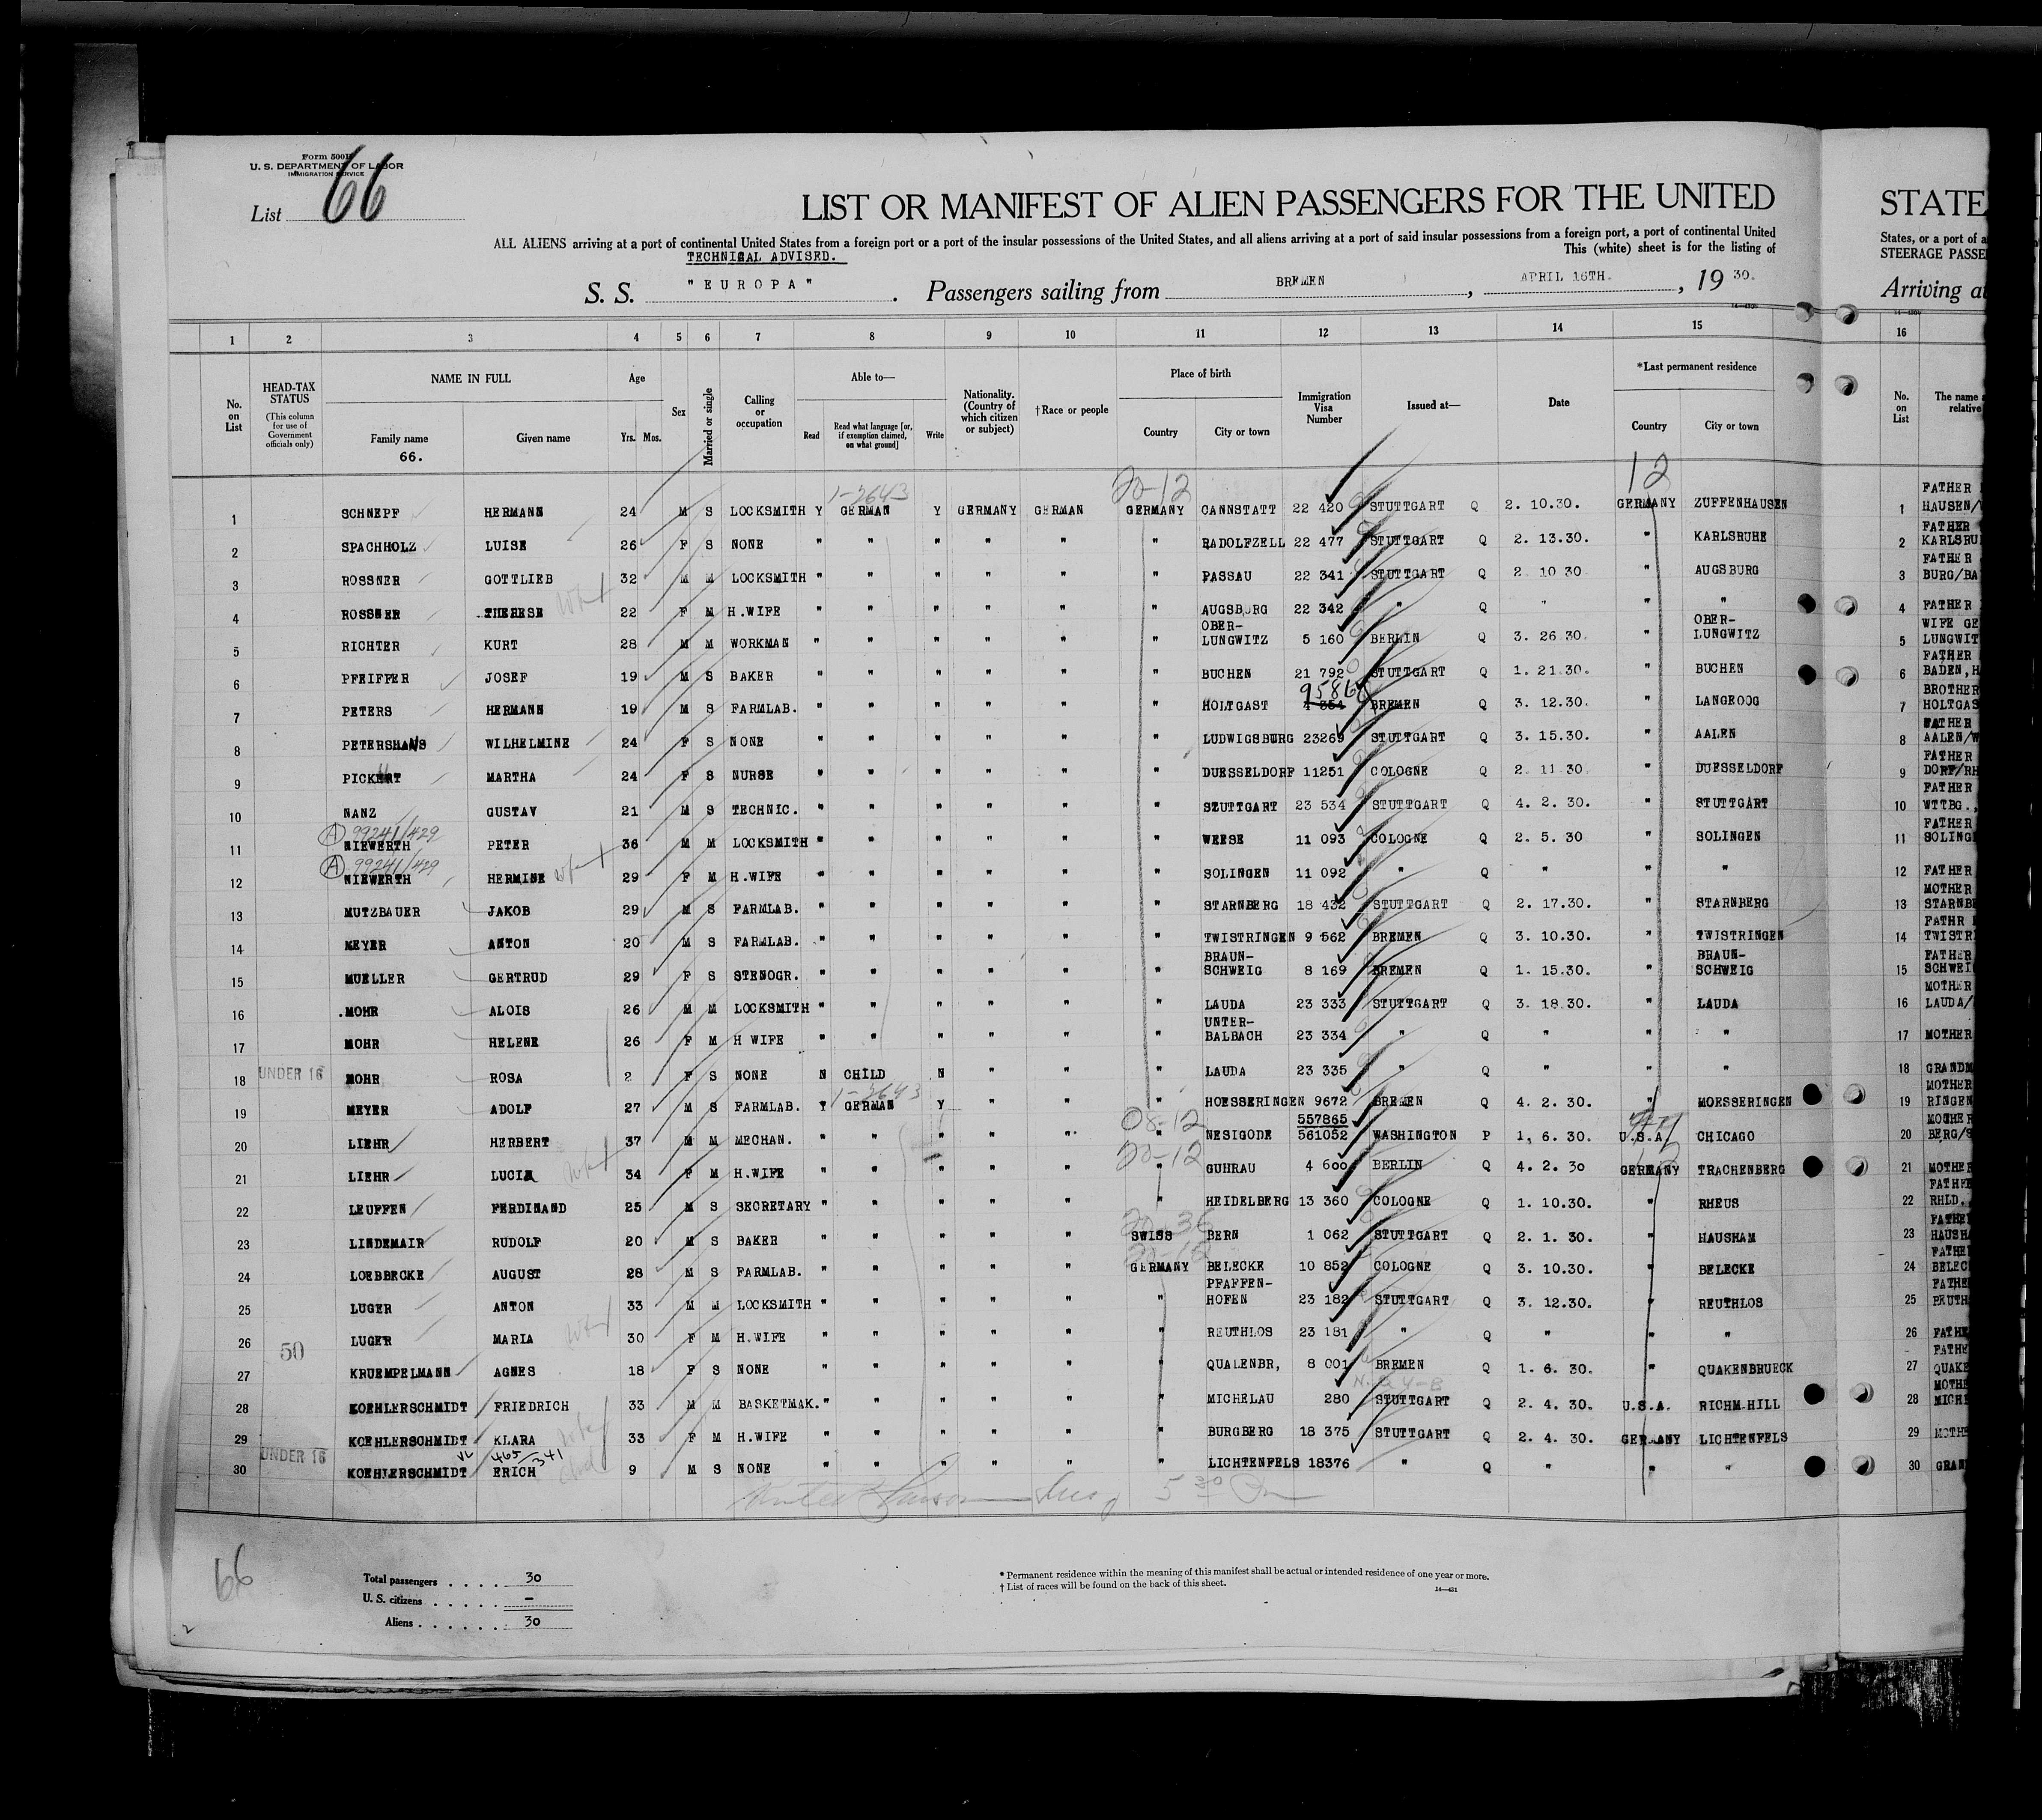 Form 500
U. S. DEPARTMENT OF LABOR
IMMIGRATION SERVICE
List 66
LIST OR MANIFEST OF ALIEN PASSENGERS FOR THE UNITED
STATE
ALL ALIENS arriving at a port of continental United States from a foreign port or a port of the insular possessions of the United States, and all aliens arriving at a port of said insular possessions from a foreign port, a port of continental United
States, or a port of a
TECHNICAL ADVISED.
This (white) sheet is for the listing of
STEERAGE PASSE
S. S. "EUROPA". Passengers sailing from BREMEN, APRIL 16TH., 1930.
Arriving at
1 2 3 4 5 6 7 8 9 10 11 12 13 14 15 16
No. on List
HEAD-TAX STATUS (This column for use of Government officials only)
NAME IN FULL
Family name
66.
Given name
Age
Yrs. Mos.
Sex
Married or single
Calling or occupation
Able to—
Read
Read what language [or, if exemption claimed, on what ground]
Write
Nationality. (Country of which citizen or subject)
†Race or people
Place of birth
Country
City or town
Immigration Visa Number
Issued at—
Date
*Last permanent residence
Country
City or town
No. on List
The name a
relative
1-2643 20-12 12
1 SCHNEPF HERMANN 24 M S LOCKSMITH Y GERMAN Y GERMANY GERMAN GERMANY CANNSTATT 22 420 STUTTGART Q 2. 10.30. GERMANY ZUFFENHAUSEN 1 FATHER HAUSEN/
2 SPACHHOLZ LUISE 26 F S NONE " " " " " " RADOLFZELL 22 477 STUTTGART Q 2. 13.30. " KARLSRUHE 2 FATHER KARLSRU
3 ROSSNER GOTTLIEB 32 M M LOCKSMITH " " " " " " PASSAU 22 341 STUTTGART Q 2. 10 30 " AUGSBURG 3 FATHER BURG/BA
4 ROSSNER THERESE 22 F M H.WIFE " " " " " " AUGSBURG 22 342 " Q " " " 4 FATHER
5 RICHTER KURT 28 M M WORKMAN " " " " " " OBER-LUNGWITZ 5 160 BERLIN Q 3. 26 30. " OBER-LUNGWITZ 5 WIFE GE LUNGWIT
6 PFEIFFER JOSEF 19 M S BAKER " " " " " " BUCHEN 21 792 STUTTGART Q 1. 21.30. " BUCHEN 6 FATHER BADEN,H
7 PETERS HERMANN 19 M S FARMLAB. " " " " " " HOLTGAST BREMEN Q 3. 12.30. " LANGEOOG 7 BROTHER HOLTGAS
8 PETERSHANS WILHELMINE 24 F S NONE " " " " " " LUDWIGSBURG 23269 STUTTGART Q 3. 15.30. " AALEN 8 FATHER AALEN/W
9 PICKERT MARTHA 24 F S NURSE " " " " " " DUESSELDORF 11251 COLOGNE Q 2. 11 30 " DUESSELDORF 9 FATHER DORF/RH
10 NANZ GUSTAV 21 M S TECHNIC. " " " " " " SZUTTGART 23 534 STUTTGART Q 4. 2. 30. " STUTTGART 10 FATHER WTTBG.,
(A) 99241/429
11 NIEWERTH PETER 36 M M LOCKSMITH " " " " " " WEESE 11 093 COLOGNE Q 2. 5. 30 " SOLINGEN 11 FATHER SOLING
(A) 99241/429
12 NIEWERTH HERMINE 29 F M H.WIFE " " " " " " SOLINGEN 11 092 " Q " " " 12 FATHER
13 MUTZBAUER JAKOB 29 M S FARMLAB. " " " " " " STARNBERG 18 432 STUTTGART Q 2. 17.30. " STARNBERG 13 MOTHER STARNBE
14 MEYER ANTON 20 M S FARMLAB. " " " " " " TWISTRINGEN 9 562 BREMEN Q 3. 10.30. " TWISTRINGEN 14 FATHR TWISTR
15 MUELLER GERTRUD 29 F S STENOGR. " " " " " " BRAUN-SCHWEIG 8 169 BREMEN Q 1. 15.30. " BRAUN-SCHWEIG 15 FATHER SCHWEI
16 MOHR ALOIS 26 M M LOCKSMITH " " " " " " LAUDA 23 333 STUTTGART Q 3. 18.30. " LAUDA 16 MOTHER LAUDA/
17 MOHR HELENE 26 F M H WIFE " " " " " " UNTER-BALBACH 23 334 " Q " " " 17 MOTHER
18 UNDER 16 MOHR ROSA 2 F S NONE N CHILD N " " " LAUDA 23 335 " Q " " " 18 GRANDM
1-2643
19 MEYER ADOLF 27 M S FARMLAB. Y GERMAN Y " " " HOESSERINGEN 9672 BREMEN Q 4. 2. 30. " MOESSERINGEN 19 MOTHER RINGEN
08-12 557865
20 LIEHR HERBERT 37 M M MECHAN. " " " " " " NESIGODE 561052 WASHINGTON P 1, 6. 30. U.S.A. CHICAGO 20 MOTHER BERG/S
20-12
21 LIEHR LUCIA 34 F M H.WIFE " " " " " " GUHRAU 4 600 BERLIN Q 4. 2. 30 GERMANY TRACHENBERG 21 MOTHE
22 LEUFFEN FERDINAND 25 M S SECRETARY " " " " " " HEIDELBERG 13 360 COLOGNE Q 1. 10.30. " RHEUS 22 FATHE RHLD.
20-36
23 LINDEMAIR RUDOLF 20 M S BAKER " " " " " SWISS BERN 1 062 STUTTGART Q 2. 1. 30. " HAUSHAM 23 FATHE HAUSH
20-12
24 LOEBBECKE AUGUST 28 M S FARMLAB. " " " " " GERMANY BELECKE 10 852 COLOGNE Q 3. 10.30. " BELECKE 24 FATHE BELEC
25 LUGER ANTON 33 M M LOCKSMITH " " " " " " PFAFFEN-HOFEN 23 182 STUTTGART Q 3. 12.30. " REUTHLOS 25 FATHE
26 LUGER MARIA 30 F M H.WIFE " " " " " " REUTHLOS 23 181 " Q " " " 26 FATHE
50
27 KRUEMPELMANN AGNES 18 F S NONE " " " " " " QUALENBR, 8 001 BREMEN Q 1. 6. 30. " QUAKENBRUECK 27 FATHE QUAKE
28 KOEHLERSCHMIDT FRIEDRICH 33 M M BASKETMAK. " " " " " " MICHELAU 280 STUTTGART Q 2. 4. 30. U.S.A. RICHM.HILL 28 MOTHE MICHE
29 KOEHLERSCHMIDT KLARA 33 F M H.WIFE " " " " " " BURGBERG 18 375 STUTTGART Q 2. 4. 30. GERMANY LICHTENFELS 29 MOTHE
465/341
30 UNDER 16 KOEHLERSCHMIDT ERICH 9 M S NONE " " " " " " LICHTENFELS 18376 " Q " " " 30 GRAN
66
Total passengers . . . . 30
U. S. citizens . . . . . –
Aliens . . . . . . 30
* Permanent residence within the meaning of this manifest shall be actual or intended residence of one year or more.
† List of races will be found on the back of this sheet.
14—431